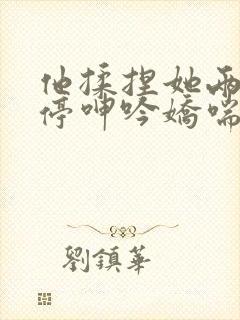 他揉捏她兩
停呻吟嬌喘
劉鎮華